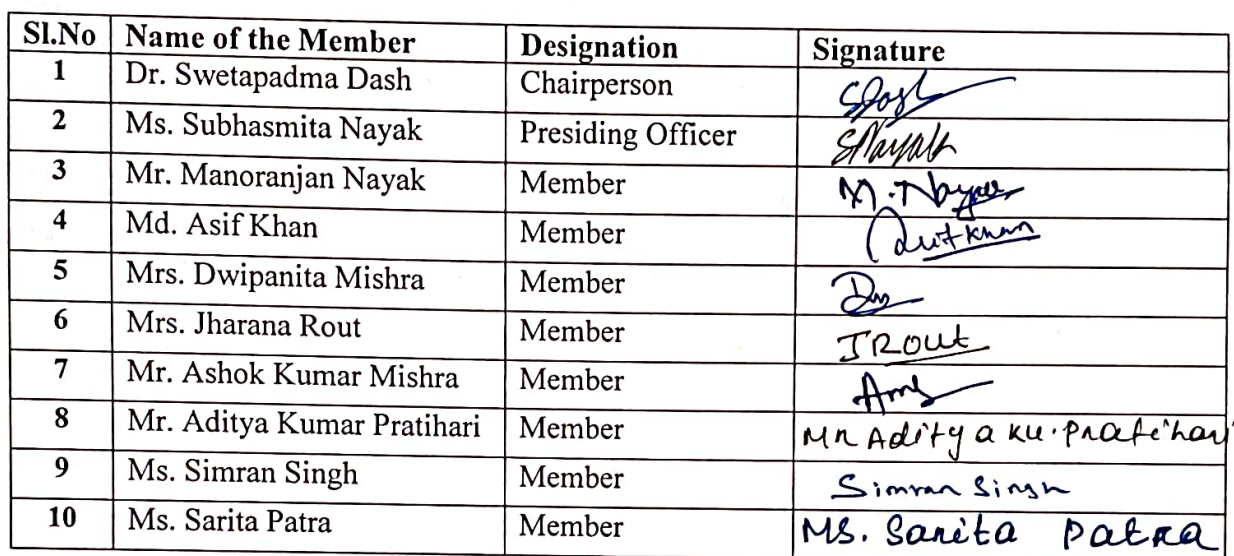 Sl.No Name of the Member Designation Signature
1 Dr. Swetapadma Dash Chairperson SDash
2 Ms. Subhasmita Nayak Presiding Officer SNayak
3 Mr. Manoranjan Nayak Member M. Nayak
4 Md. Asif Khan Member Asif Khan
5 Mrs. Dwipanita Mishra Member
6 Mrs. Jharana Rout Member JROUT
7 Mr. Ashok Kumar Mishra Member
8 Mr. Aditya Kumar Pratihari Member Mr Aditya Ku. Pratihari
9 Ms. Simran Singh Member Simran Singh
10 Ms. Sarita Patra Member MS. Sarita Patra